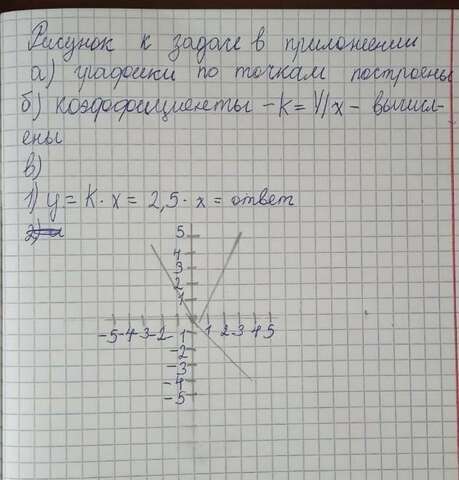 Рисунок к задаче в приложении
а) графики по точкам построены
б) коэффициенты - k = Y/x - вычисл-
ены
в)
1) y = k · x = 2,5 · x = ответ
2)
5
4
3
2
1
-5 -4 -3 -2 1 2 3 4 5
1
-2
-3
-4
-5